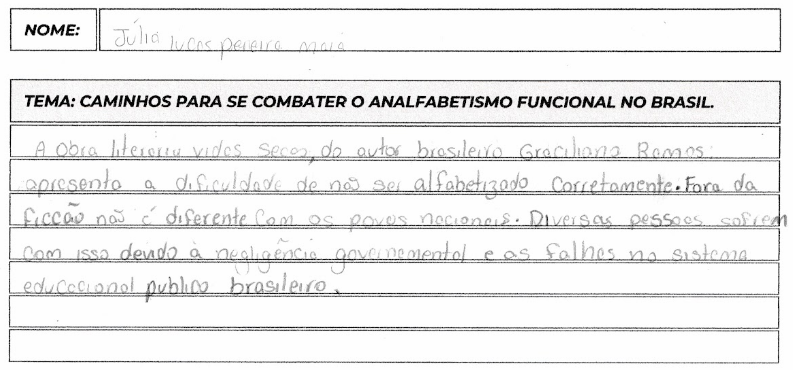 NOME: Júlia lucas pereira maia
TEMA: CAMINHOS PARA SE COMBATER O ANALFABETISMO FUNCIONAL NO BRASIL.
A Obra literaria vidas secas, do autor brasileiro Graciliano Ramos
apresenta a dificuldade de não ser alfabetizado corretamente. Fora da
ficcão não é diferente Com os povos nacionais. Diversas pessoas sofrem
com isso devido à negligência governamental e as falhas no sistema
educacional publico brasileiro.